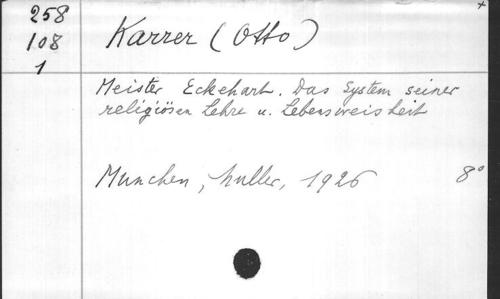 258
108
1
Karrer (Otto)
Meister Eckehart. Das System seiner
religiösen Lehre u. Lebensweisheit
Munchen, Muller, 1926 8°